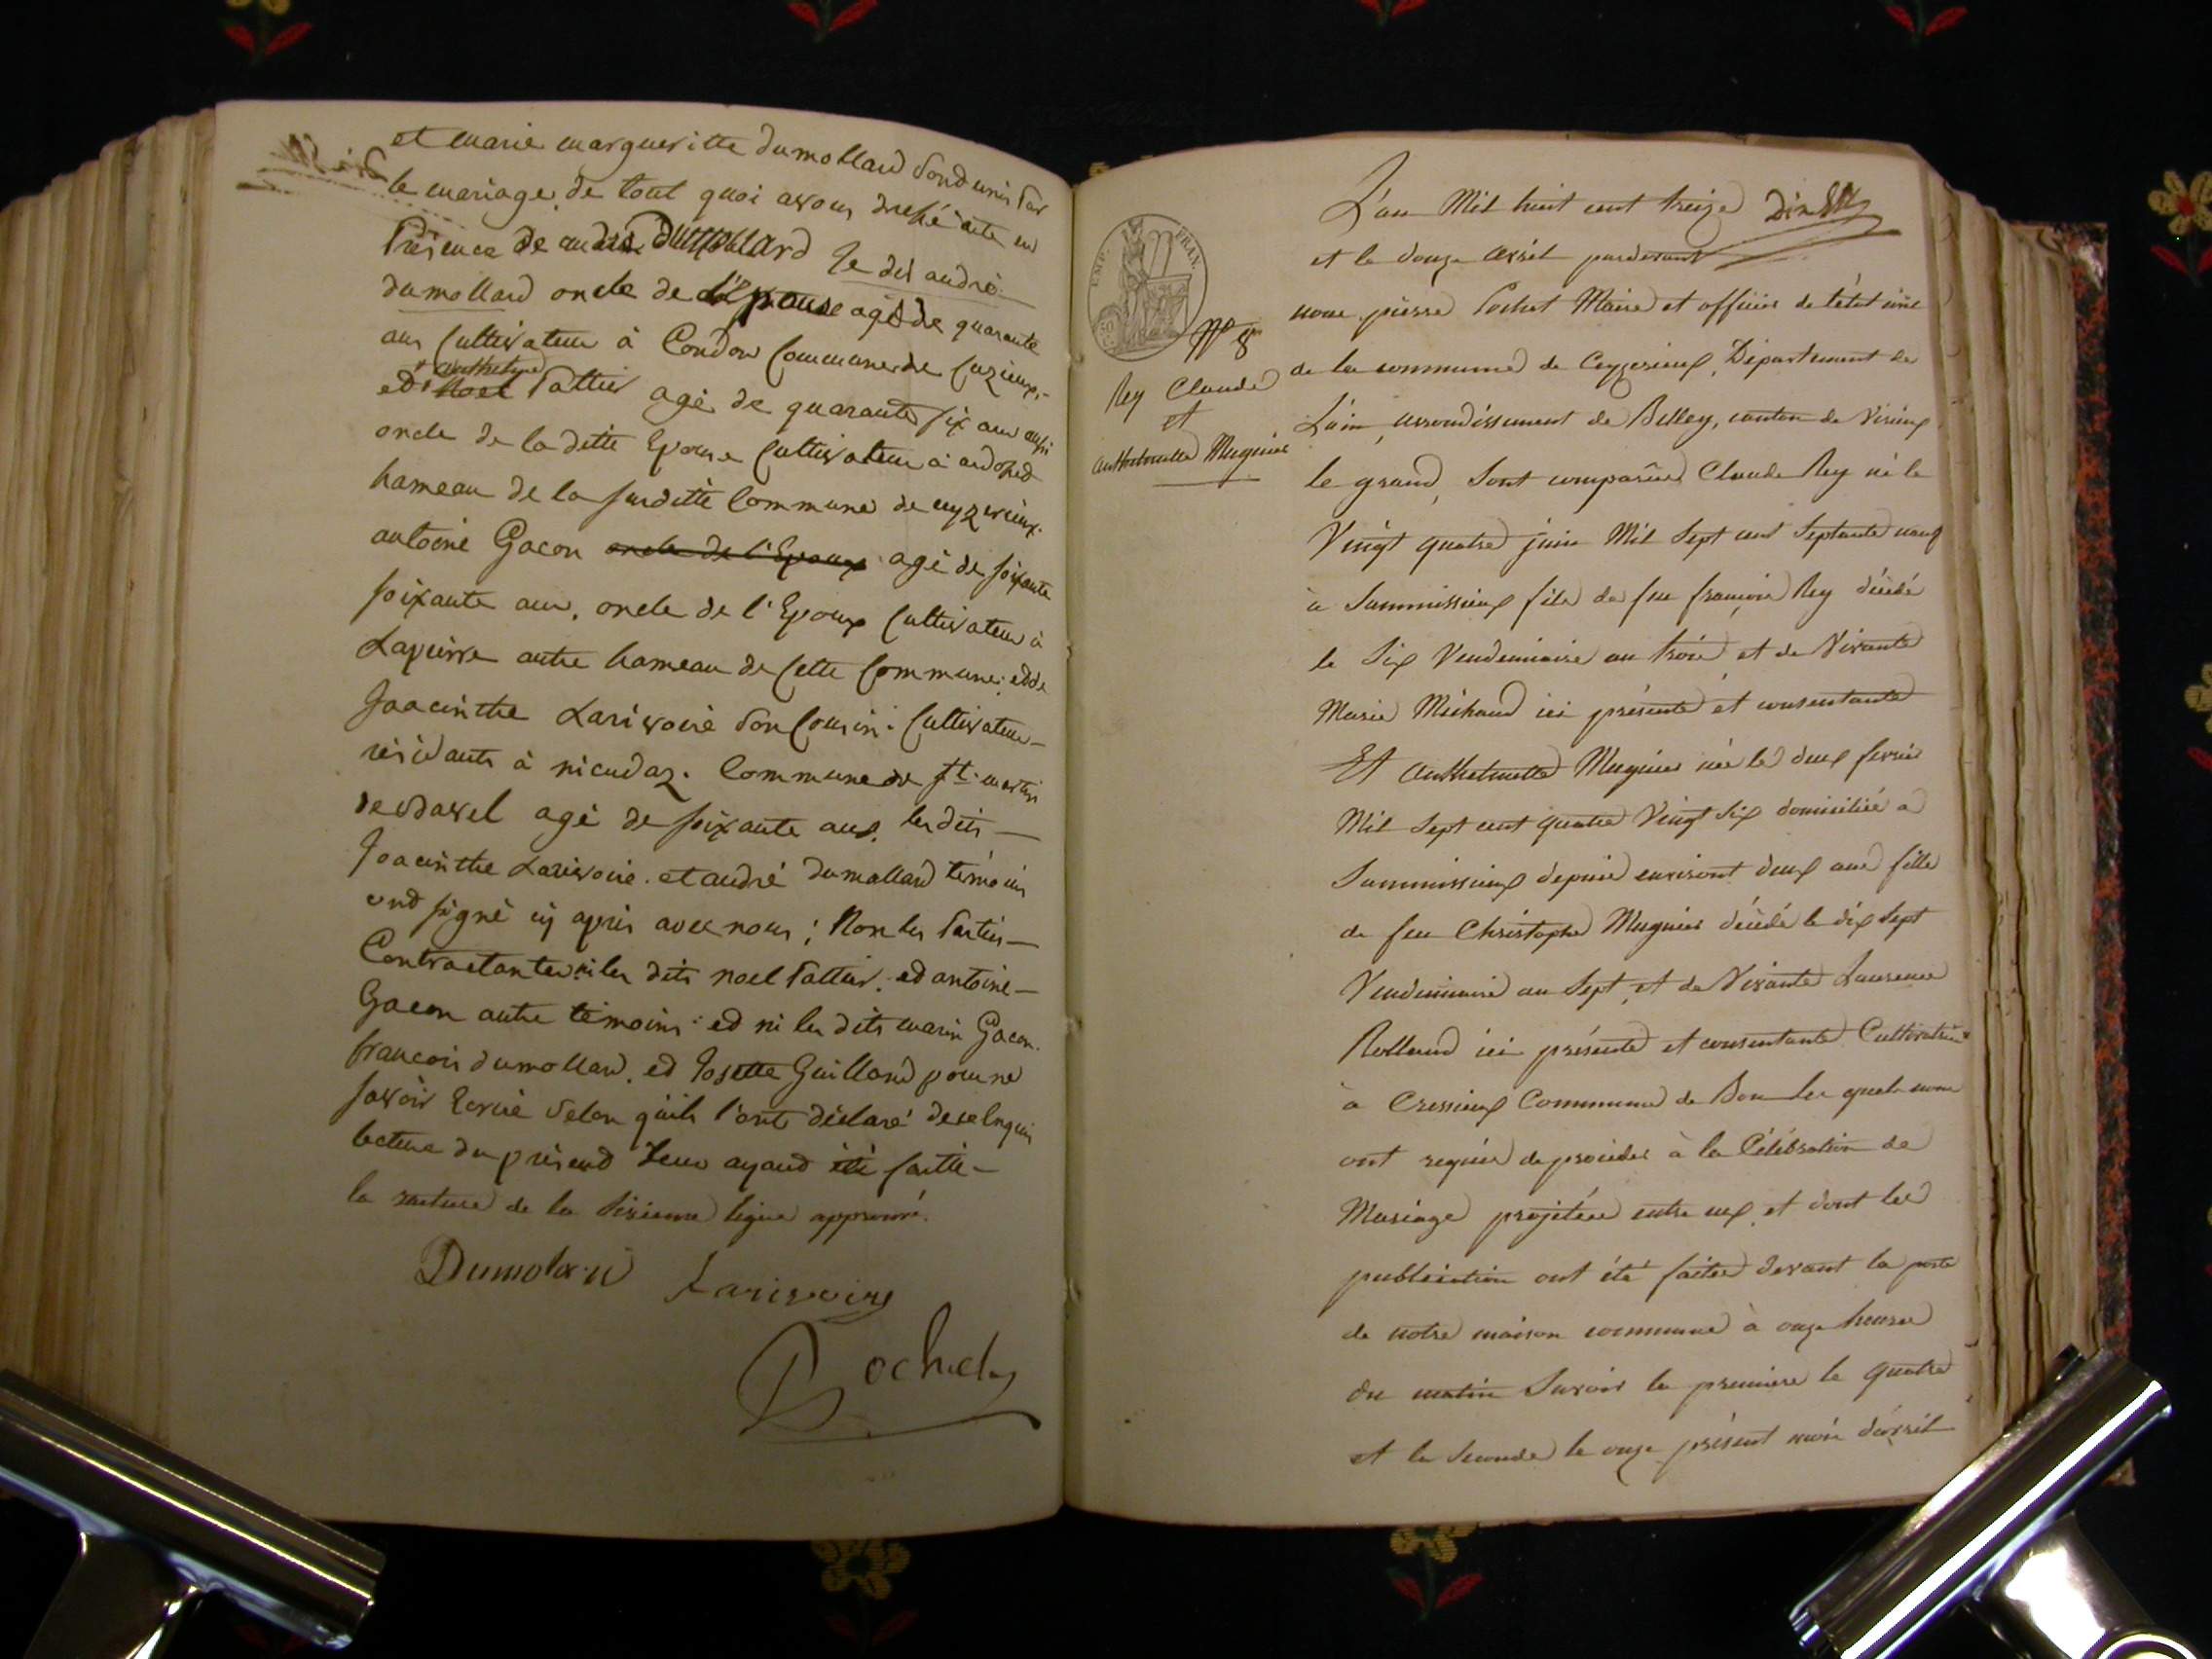 et marie margueritte dumollard sond unis par
le mariage, de tout quoi avons dressé acte en
Présence de andré Dumollard Je dis andré
dumollard oncle de l'épouse agé de quarante
ans Cultivateur à Condon Commune de
anthelme
et Noel Pattier agé de quarante six ans aussi
oncle de la ditte Epouse Cultivateur à ardosed
hameau de la surditte Commune de ceyzerieux.
antoine Gacon oncle de l'Epoux agé de soixante
soixante ans, oncle de l'Epoux Cultivateur à
Lapierre autre hameau de Cette Commune; edde
Joacinthe Larivoire son Cousin. Cultivateur
résidants à Commune de st. martin
de bavel agé de soixante ans, les dits
Joacinthe Larivoire. et andré dumollard témoins
ond signé cy après avec nous; Non les Parties
Contractantes ni les dits noel Pattier. ed antoine
Gacon autre témoins: ed ni les dits marin Gacon.
francois dumollard, ed Josette Guilland pour ne
savoir Ecrire selon quils l'ont déclaré de ce Enquis
lecture du présend Leur ayand été faitte
la rature de la sixieme ligne approuvé.
Dumolard Larivoire
Pochet
EMP. FRAN.
50
N° 8
Rey Claude
et
Anthelmette Mugnier
L'an Mil huit cent treize
et le douze avril pardevant
nous pierre Pochet Maire et officier de l'état civil
de la commune de Ceyzerieux, Département de
L'ain, arrondissement de Belley, canton de Virieux
le grand, Sont comparus Claude Rey né le
Vingt quatre juin Mil Sept cent Septante neuf
à Summissieux fils de feu françois Rey décédé
le Six Vendemiaire an trois et de Vivante
Marie Michaud ici présente et consentante
Et Anthelmette Mugnier née le deux fevrier
Mil Sept cent quatre Vingt Six domiciliée a
Summissieux depuis environt deux ans fille
de feu Christophe Mugnier décédé le dix Sept
Vendemiaire an Sept, et de Vivante Laurence
Rolland ici présente et consentante Cultivatrice
à Cressieux Commune de Bon Les quels nous
ont requis de procéder à la Célébration de
Mariage projétée entre eux, et dont les
publication ont été faites devant la porte
de notre maison commune à onze heures
du matin Savoir la premiere le quatre
et la Seconde le onze présent mois d'avril